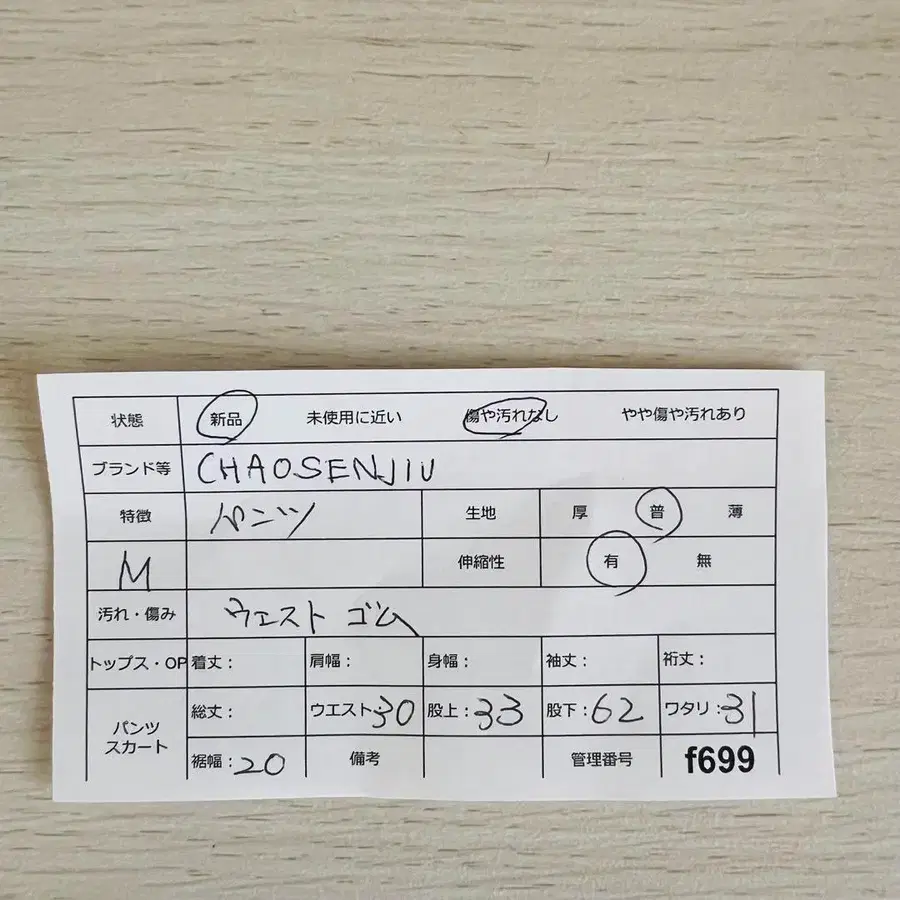 状態 新品 未使用に近い 傷や汚れなし やや傷や汚れあり
ブランド等 CHAOSENJIU
特徴 パンツ 生地 厚 普 薄
M 伸縮性 有 無
汚れ・傷み ウエスト ゴム
トップス・OP 着丈: 肩幅: 身幅: 袖丈: 裄丈:
パンツ スカート 総丈: ウエスト:30 股上:33 股下:62 ワタリ:31
裾幅:20 備考 管理番号 f699